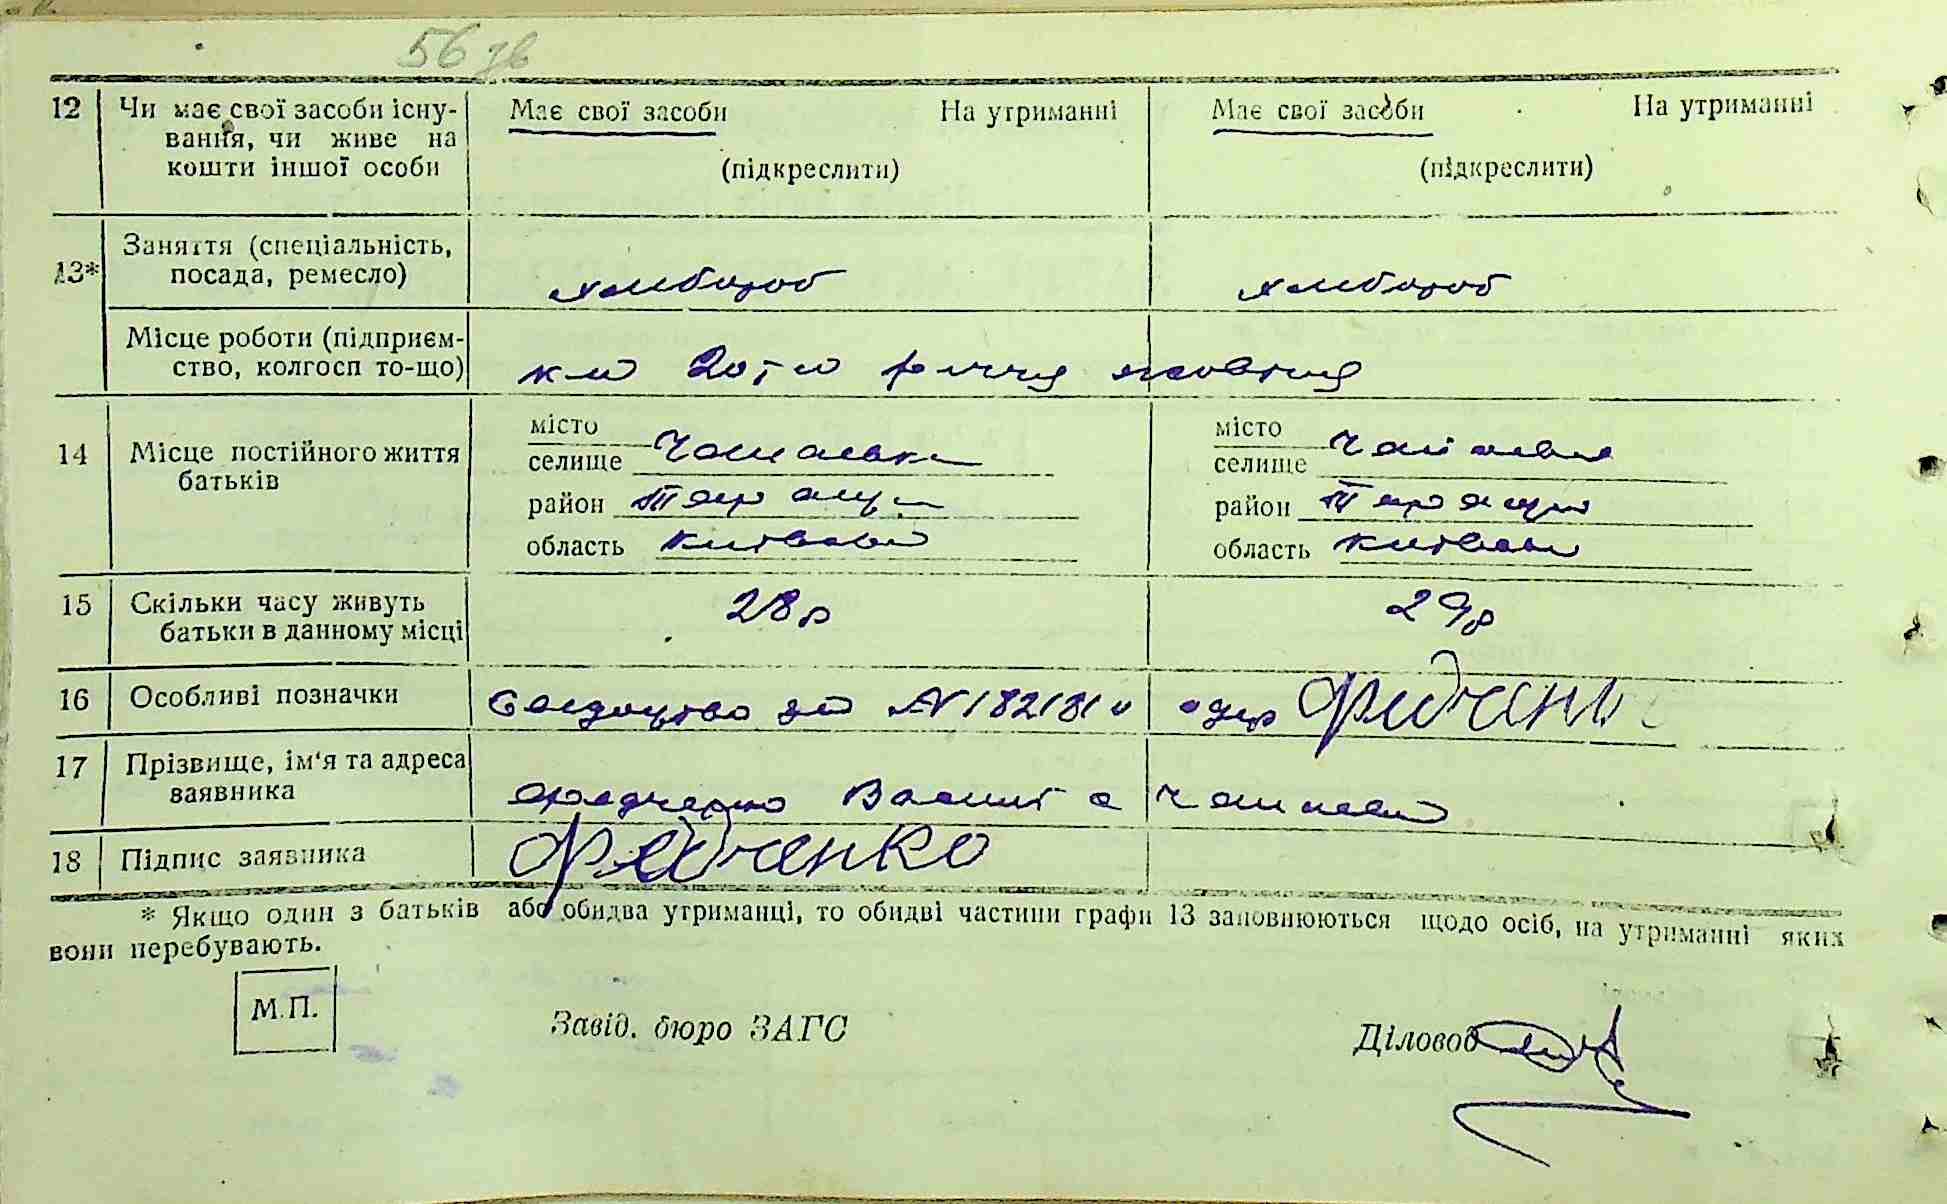 56 зв
12 Чи має свої засоби існу- Має свої засоби На утриманні Має свої засоби На утриманні
вання, чи живе на
кошти іншої особи (підкреслити) (підкреслити)
Заняття (спеціальність,
13* посада, ремесло) хлибороб хлибороб
Місце роботи (підприєм-
ство, колгосп то-що) роччя жовтня
місто місто
14 Місце постійного життя селище селище
батьків
район Таращ район Таращ
область Київськ область Київськ
15 Скільки часу живуть 28 р 29 р
батьки в данному місці
16 Особливі позначки No 182181 одер Федченко
17 Прізвище, ім'я та адреса
заявника Федченко Василь с
18 Підпис заявника Федченко
* Якщо один з батьків або обидва утриманці, то обидві частини графи 13 заповнюються щодо осіб, на утриманні яких
вони перебувають.
М.П.
Завід. бюро ЗАГС Діловод